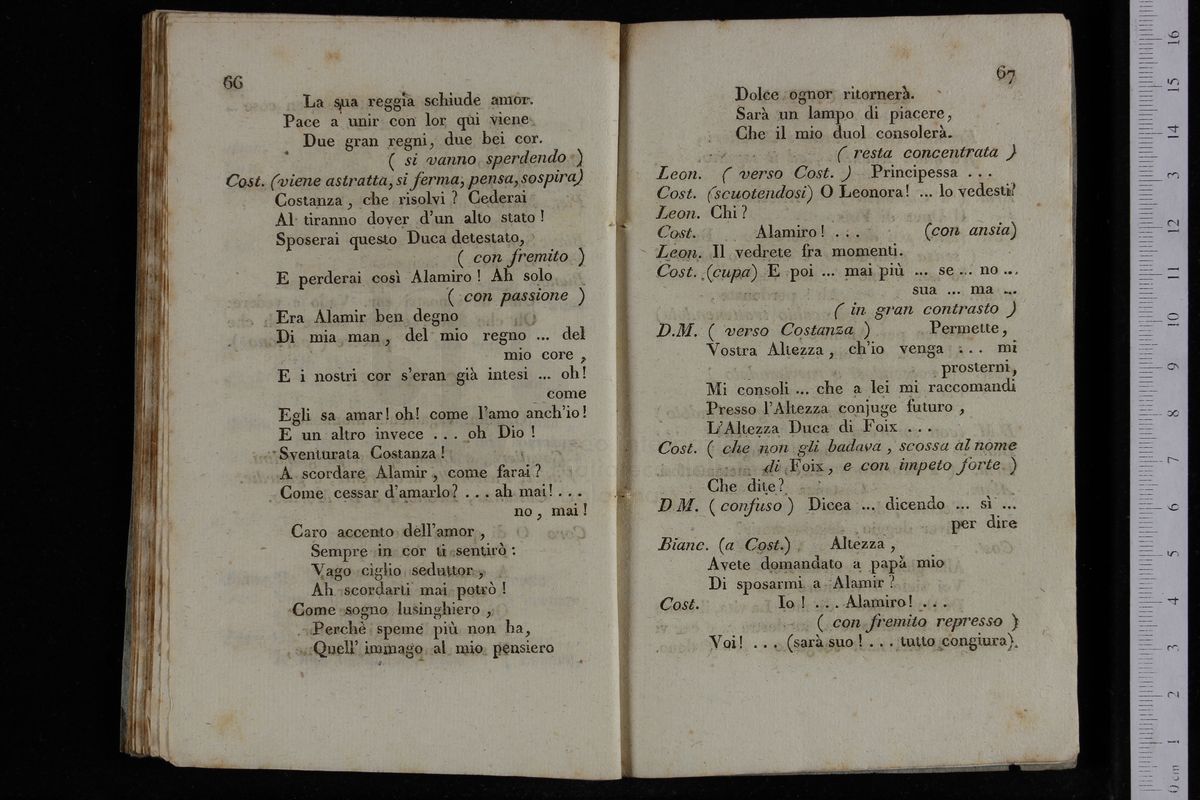 66
La sua reggia schiude amor.
Pace a unir con lor qui viene
Due gran regni, due bei cor.
( si vanno sperdendo )
Cost. (viene astratta, si ferma, pensa, sospira)
Costanza, che risolvi ? Cederai
Al tiranno dover d'un alto stato !
Sposerai questo Duca detestato,
( con fremito )
E perderai così Alamiro ! Ah solo
( con passione )
Era Alamir ben degno
Di mia man, del mio regno ... del
mio core ,
E i nostri cor s'eran già intesi ... oh!
come
Egli sa amar! oh! come l'amo anch'io!
E un altro invece . . . oh Dio !
Sventurata Costanza !
A scordare Alamir , come farai ?
Come cessar d'amarlo? . . . ah mai! . . .
no , mai !
Caro accento dell'amor ,
Sempre in cor ti sentirò :
Vago ciglio seduttor ,
Ah scordarti mai potrò !
Come sogno lusinghiero ,
Perchè speme più non ha,
Quell' immago al mio pensiero
67
Dolce ognor ritornerà.
Sarà un lampo di piacere,
Che il mio duol consolerà.
( resta concentrata )
Leon. ( verso Cost. ) Principessa . . .
Cost. (scuotendosi) O Leonora! ... lo vedesti?
Leon. Chi ?
Cost. Alamiro ! . . . (con ansia)
Leon. Il vedrete fra momenti.
Cost. (cupa) E poi ... mai più ... se ... no ...
sua ... ma ...
( in gran contrasto )
D.M. ( verso Costanza ) Permette,
Vostra Altezza , ch'io venga . . . mi
prosterni,
Mi consoli ... che a lei mi raccomandi
Presso l'Altezza conjuge futuro ,
L'Altezza Duca di Foix . . .
Cost. ( che non gli badava , scossa al nome
di Foix, e con impeto forte )
Che dite?
D M. ( confuso ) Dicea ... dicendo ... sì ...
per dire
Bianc. (a Cost.) Altezza ,
Avete domandato a papà mio
Di sposarmi a Alamir ?
Cost. Io ! . . . Alamiro! . . .
( con fremito represso )
Voi! . . . (sarà suo ! . . . tutto congiura).